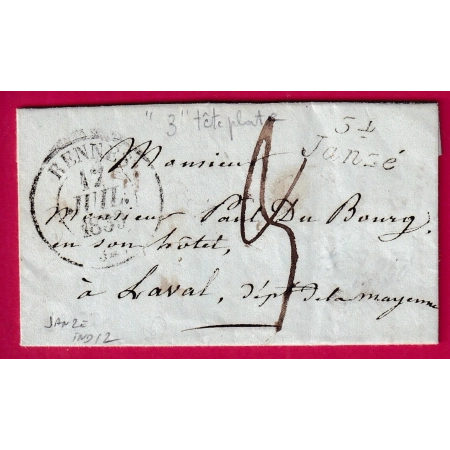 "3" tête plate
34
Janzé
RENNES
17
JUIL.
Monsieur
Monsieur Paul Du Bourg,
en son hôtel,
à Laval, dépt. de la mayenne
3
JANZÉ
IND 12